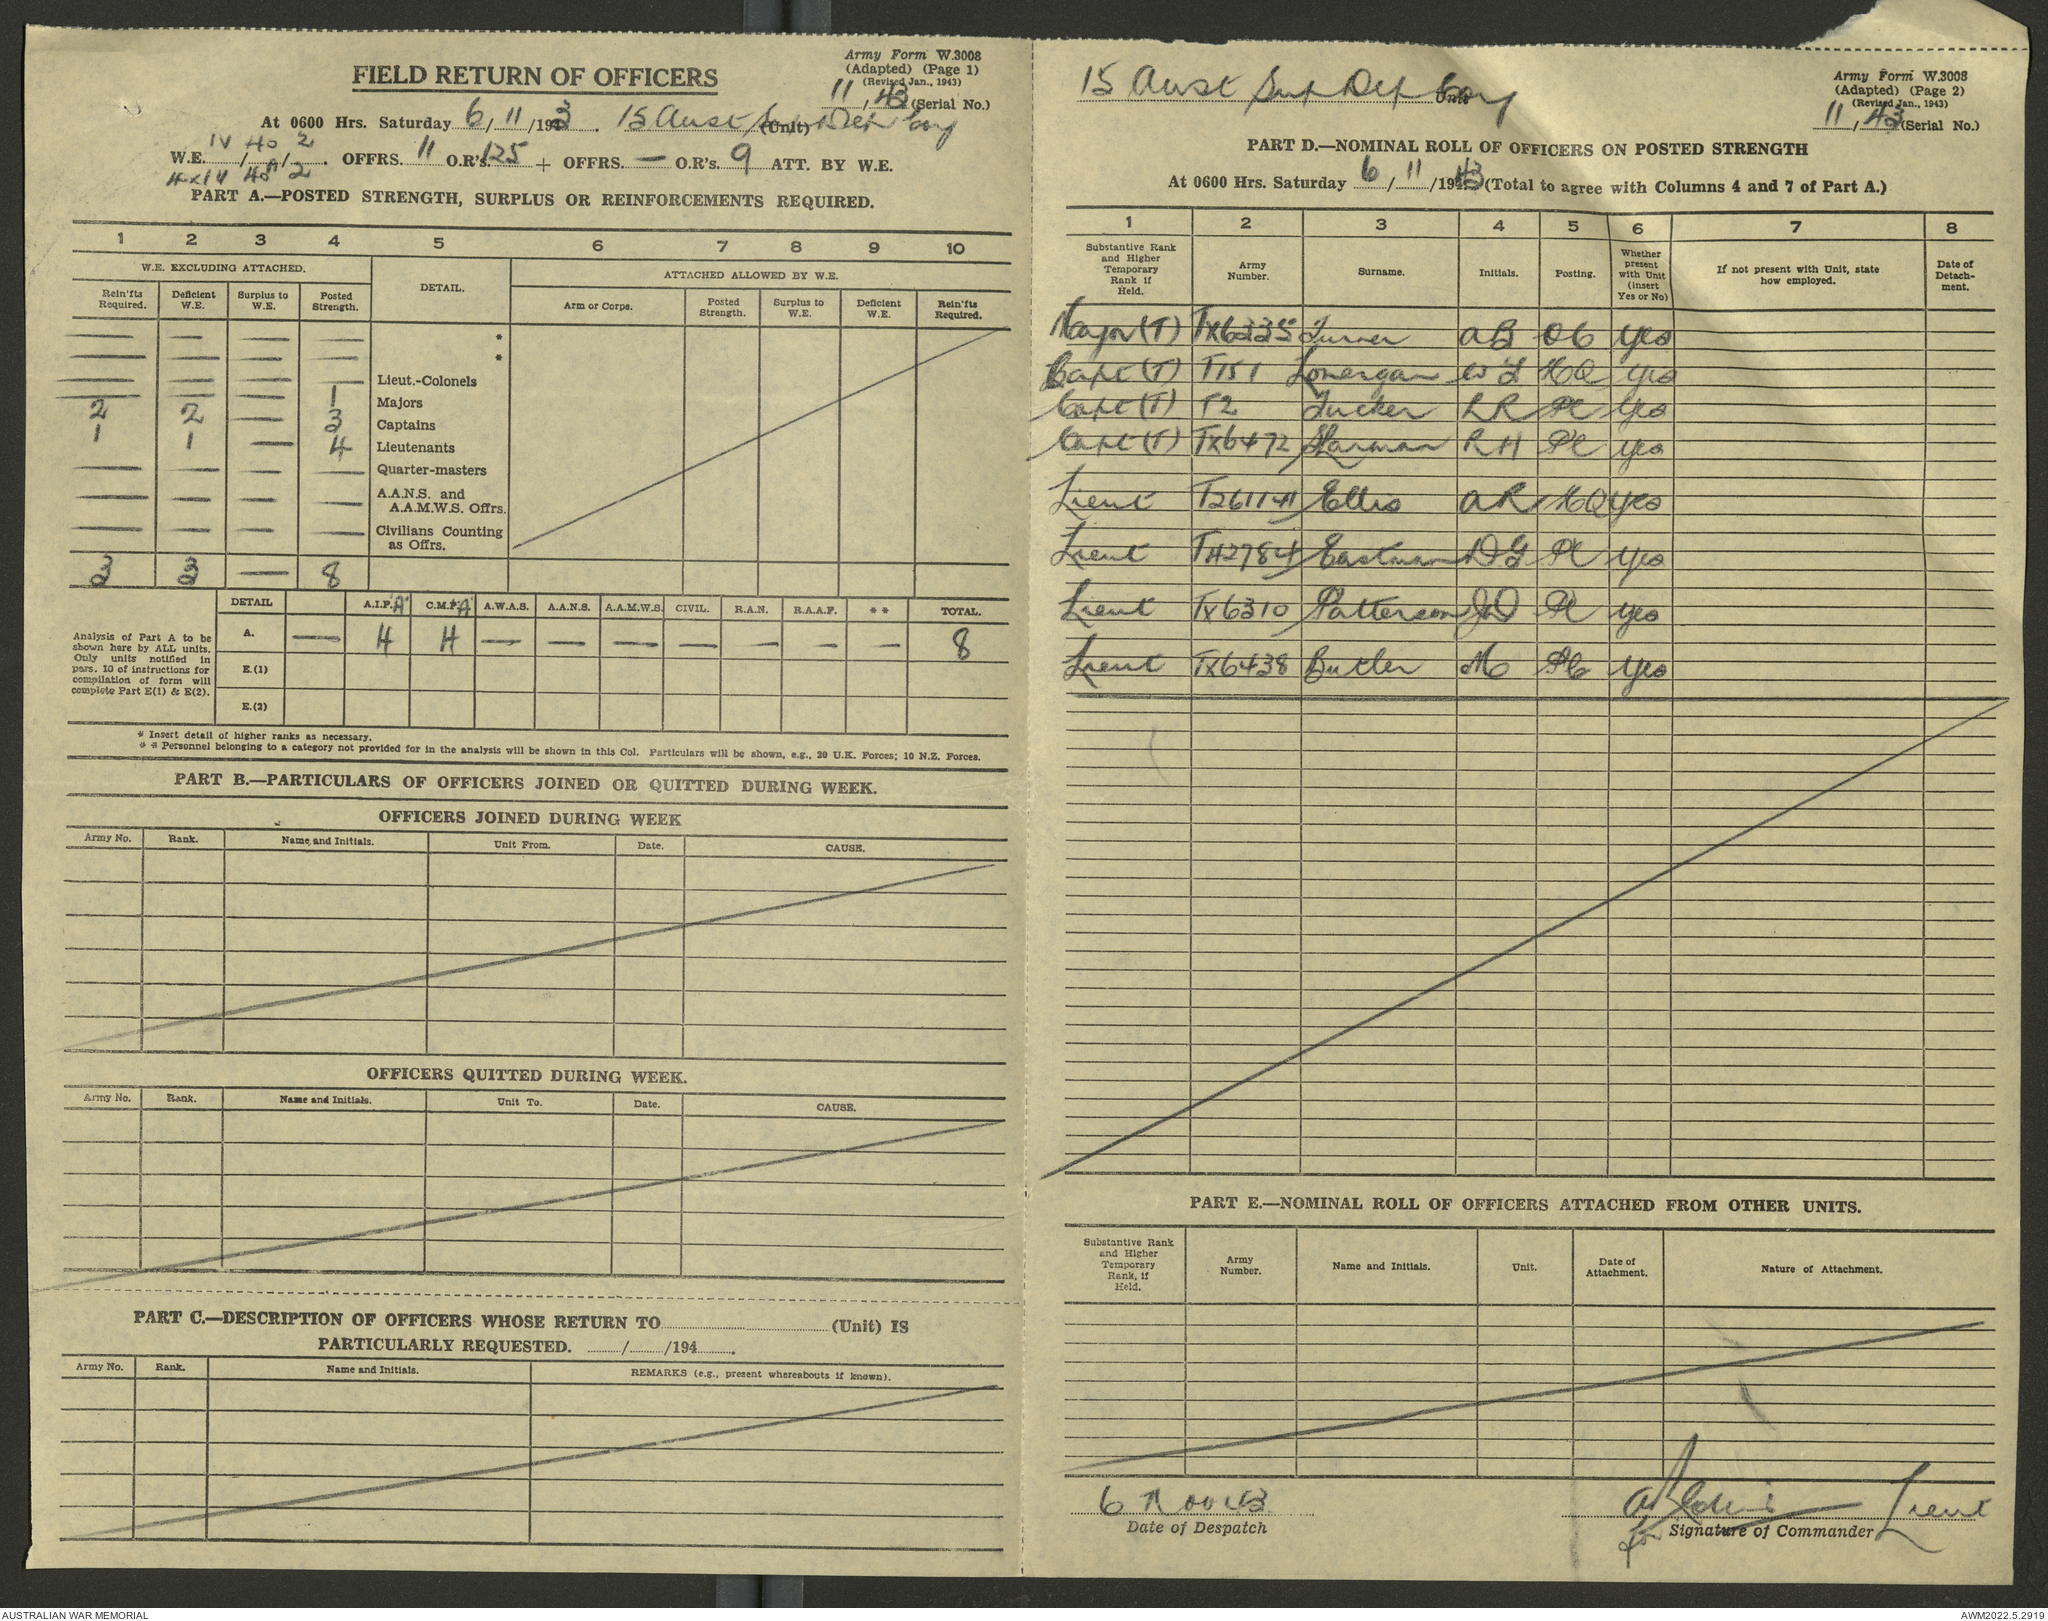 Army Form W.3008
(Adapted) (Page 1)
(Revised Jan., 1943)
11, 43 (Serial No.)
FIELD RETURN OF OFFICERS
At 0600 Hrs. Saturday 6/11/1943. 15 Aust Sup Dep Coy (Unit)
IV 40 2
W.E. / / . OFFRS. 11 O.R's. 125 + OFFRS. — O.R's. 9 ATT. BY W.E.
PART A.—POSTED STRENGTH, SURPLUS OR REINFORCEMENTS REQUIRED.
1 2 3 4 5 6 7 8 9 10
W.E. EXCLUDING ATTACHED. DETAIL. ATTACHED ALLOWED BY W.E.
Rein'fts Required. Deficient W.E. Surplus to W.E. Posted Strength. Arm or Corps. Posted Strength. Surplus to W.E. Deficient W.E. Rein'fts Required.
— — — — *
— — — — *
— — — — Lieut.-Colonels
— — — 1 Majors
2 2 — 3 Captains
1 1 — 4 Lieutenants
— — — — Quarter-masters
— — — — A.A.N.S. and A.A.M.W.S. Offrs.
— — — — Civilians Counting as Offrs.
3 3 — 8
DETAIL A.I.F. 'A' C.M.F. 'A' A.W.A.S. A.A.N.S. A.A.M.W.S. CIVIL. R.A.N. R.A.A.F. * * TOTAL.
Analysis of Part A to be
shown here by ALL units.
Only units notified in
para. 10 of instructions for
compilation of form will
complete Part E(1) & E(2).
A. — 4 4 — — — — — — — 8
E.(1)
E.(2)
* Insert detail of higher ranks as necessary.
* * Personnel belonging to a category not provided for in the analysis will be shown in this Col. Particulars will be shown, e.g., 20 U.K. Forces; 10 N.Z. Forces.
PART B.—PARTICULARS OF OFFICERS JOINED OR QUITTED DURING WEEK.
OFFICERS JOINED DURING WEEK
Army No. Rank. Name and Initials. Unit From. Date. CAUSE.
OFFICERS QUITTED DURING WEEK.
Army No. Rank. Name and Initials. Unit To. Date. CAUSE.
PART C.—DESCRIPTION OF OFFICERS WHOSE RETURN TO (Unit) IS
PARTICULARLY REQUESTED. / /194 .
Army No. Rank. Name and Initials. REMARKS (e.g., present whereabouts if known).
15 Aust Sup Dep Coy Unit
Army Form W.3008
(Adapted) (Page 2)
(Revised Jan., 1943)
11, 43 (Serial No.)
PART D.—NOMINAL ROLL OF OFFICERS ON POSTED STRENGTH
At 0600 Hrs. Saturday 6/11/1943 (Total to agree with Columns 4 and 7 of Part A.)
1 2 3 4 5 6 7 8
Substantive Rank and Higher Temporary Rank if Held. Army Number. Surname. Initials. Posting. Whether present with Unit (insert Yes or No) If not present with Unit, state how employed. Date of Detach-ment.
Major (T) TX6335 Turner AB OC Yes
Capt (T) T151 Lonergan WJ HQ Yes
Capt (T) T2 Tucker LR Pl Yes
Capt (T) TX6472 Sharman RH Pl Yes
Lieut T26114 Ellis AR HQ Yes
Lieut T42784 Eastman DG Pl Yes
Lieut TX6310 Patterson JD Pl Yes
Lieut TX6438 Butler M Pl Yes
PART E.—NOMINAL ROLL OF OFFICERS ATTACHED FROM OTHER UNITS.
Substantive Rank and Higher Temporary Rank, if Held. Army Number. Name and Initials. Unit. Date of Attachment. Nature of Attachment.
6 Nov 43
Date of Despatch
Lieut
for Signature of Commander
AUSTRALIAN WAR MEMORIAL
AWM2022.5.2919